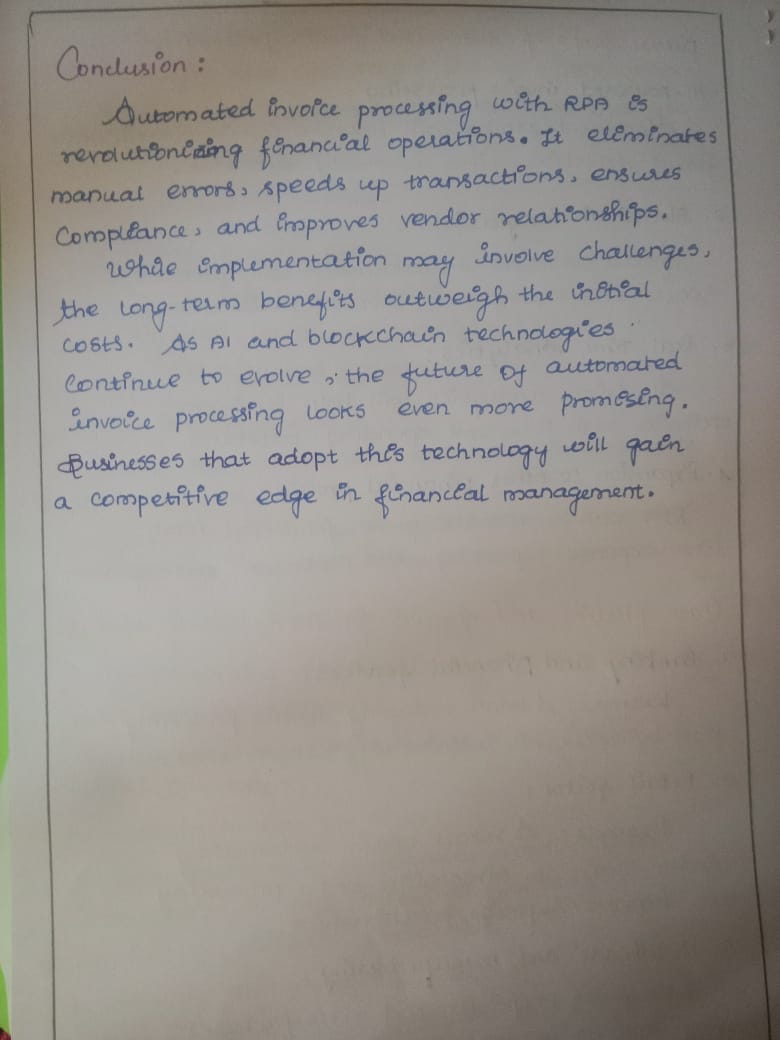 Conclusion :
Automated invoice processing with RPA is
revolutionizing financial operations. It eliminates
manual errors, speeds up transactions, ensures
Compliance, and improves vendor relationships.
While implementation may involve challenges,
the long-term benefits outweigh the initial
costs. As AI and blockchain technologies
Continue to evolve, the future of automated
invoice processing looks even more promising.
Businesses that adopt this technology will gain
a competitive edge in financial management.